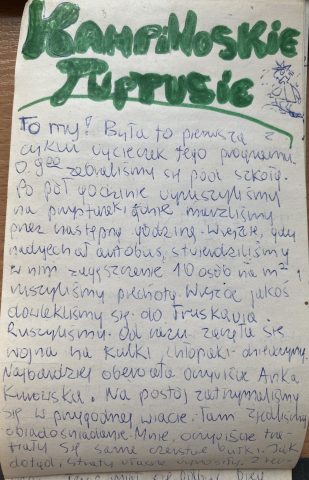 KAMPINOSKIE
TUPTUSIE
To my! Była to pierwsza z
cyklu wycieczek tego programu
O 9:00 zebraliśmy się pod szkołą.
Po pół godzinie wyruszyliśmy
na przystanek i tam, marzliśmy
przez następną godzinę. Wreszcie, gdy
nadjechał autobus, stwierdziliśmy
w nim zagęszczenie 10 osób na m² i
ruszyliśmy piechotą. Wreszcie jakoś
dowlekliśmy się do Truskawia.
Ruszyliśmy. Od razu zaczęła się
wojna na kulki chłopaki-dziewczyny.
Najbardziej oberwała oczywiście Anka
Na postój zatrzymaliśmy
się w przygodnej wiacie. Tam zjedliśmy
obiadośniadanie. Mnie, oczywiście tra-
fiały się same czerstwe bułki. Jak
dotąd, straty własne wynosiły: 2